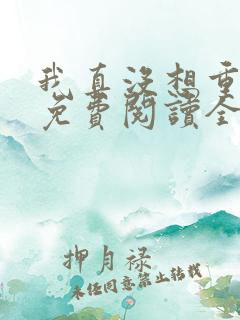 我真没想重
免費閱讀全
押月禄
未经同意禁止转载